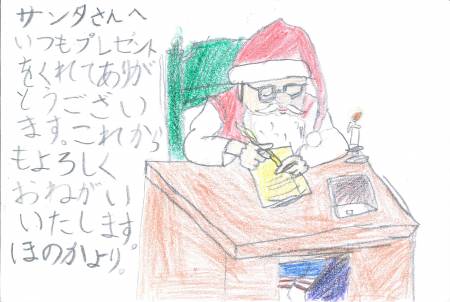 サンタさんへ
いつもプレゼント
をくれてありが
とうござい
ます。これから
もよろしく
おねがい
いたします。
ほのかより。